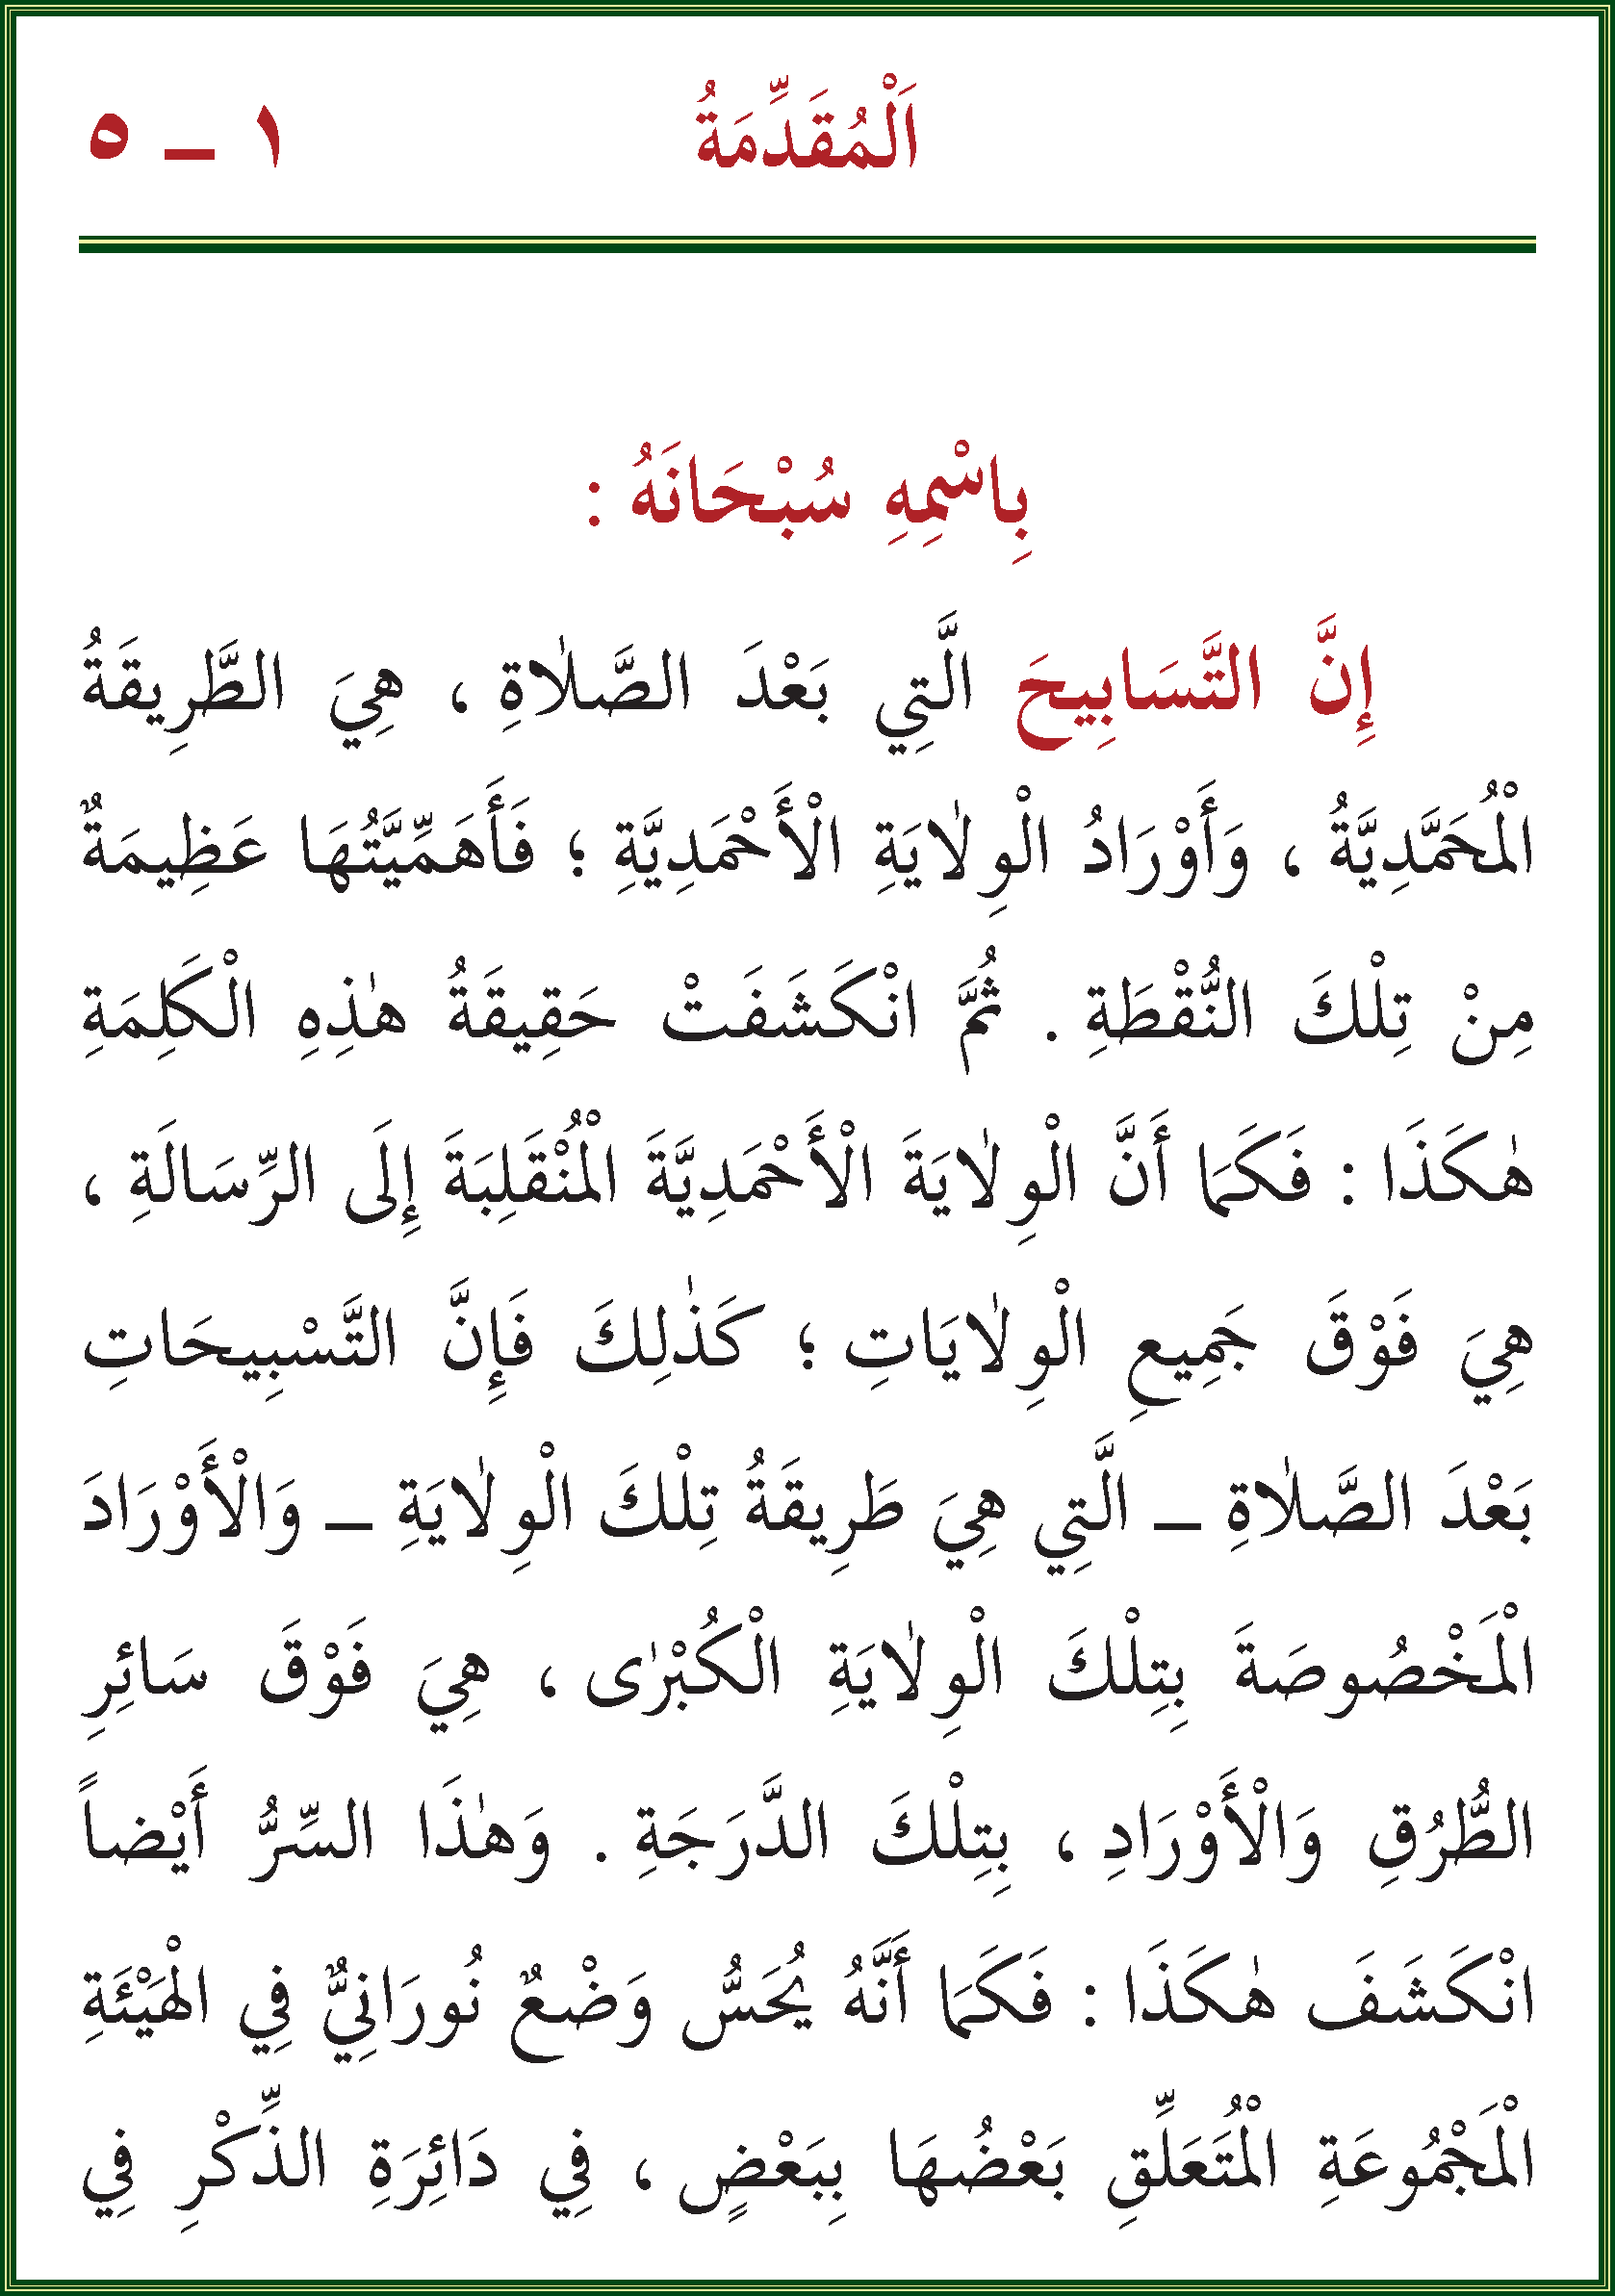 اَلْمُقَدِّمَةُ ١ ـ ٥
بِاسْمِهِ سُبْحَانَهُ :
إِنَّ التَّسَابِيحَ الَّتِي بَعْدَ الصَّلٰاةِ ، هِيَ الطَّرِيقَةُ
الْمُحَمَّدِيَّةُ ، وَأَوْرَادُ الْوِلٰايَةِ الْأَحْمَدِيَّةِ ؛ فَأَهَمِّيَّتُهَا عَظِيمَةٌ
مِنْ تِلْكَ النُّقْطَةِ . ثُمَّ انْكَشَفَتْ حَقِيقَةُ هٰذِهِ الْكَلِمَةِ
هٰكَذَا : فَكَمَا أَنَّ الْوِلٰايَةَ الْأَحْمَدِيَّةَ الْمُنْقَلِبَةَ إِلَى الرِّسَالَةِ ،
هِيَ فَوْقَ جَمِيعِ الْوِلٰايَاتِ ؛ كَذٰلِكَ فَإِنَّ التَّسْبِيحَاتِ
بَعْدَ الصَّلٰاةِ ـ الَّتِي هِيَ طَرِيقَةُ تِلْكَ الْوِلٰايَةِ ـ وَالْأَوْرَادَ
الْمَخْصُوصَةَ بِتِلْكَ الْوِلٰايَةِ الْكُبْرٰى ، هِيَ فَوْقَ سَائِرِ
الطُّرُقِ وَالْأَوْرَادِ ، بِتِلْكَ الدَّرَجَةِ . وَهٰذَا السِّرُّ أَيْضاً
انْكَشَفَ هٰكَذَا : فَكَمَا أَنَّهُ يُحَسُّ وَضْعٌ نُورَانِيٌّ فِي الْهَيْئَةِ
الْمَجْمُوعَةِ الْمُتَعَلِّقِ بَعْضُهَا بِبَعْضٍ ، فِي دَائِرَةِ الذِّكْرِ فِي